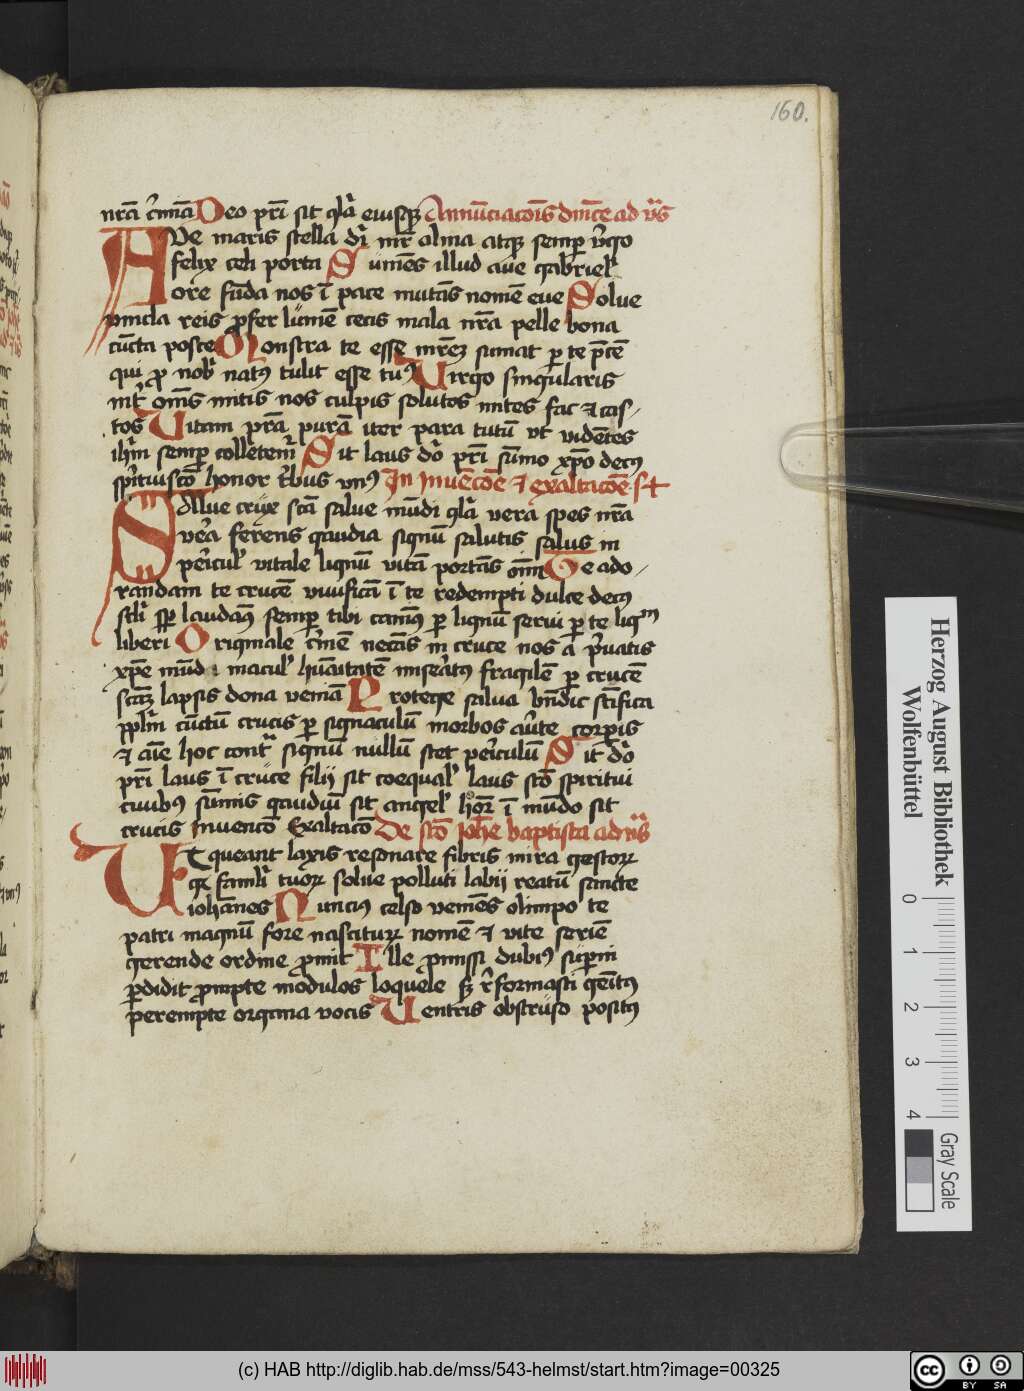 160.
nr̄a c̄mīa Deo pr̄i sit gl̄a eiusq; Annūciacōis dn̄ice ad v̄s
AVe maris stella dī mr̄ alma atq; semp v̄go
felix celi porta Sumēs illud aue gabriel
ore fūda nos ī pace mutās nomē eue Solue
vincla reis ꝓfer lumē cecis mala nr̄a pelle bona
cūcta posce Monstra te esse mr̄eʒ sumat ꝑ te p̄cē
qui ꝓ nob̄ natꝰ tulit esse tuꝰ Virgo singularis
int̄ om̄s mitis nos culpis solutos mites fac ⁊ cas/
tos Vitam pr̄a purā iter para tutū vt vidētes
ih̄m semꝑ colletem̄ Sit laus dō pr̄i sūmo xp̄o decꝰ
sp̄rituiscō honor t̄bus vnꝰ In Inuēcōe ⁊ exaltacōe s ✝
SAlue crux scā salue mūdi gl̄a vera spes nr̄a
ve᷑a ferens gaudia signū salutis salus in
pe᷑icul᷑ vitale lignū vitā portās om̄i Te ado/
randam te crucē viuificā ī te redempti dulce decꝰ
scl̄i sꝑ laudāꝰ semꝑ tibi canimꝰ ꝑ lignū serui ꝑ te ligᵐ
liberi Originale c᷑imē necās in cruce nos a p᷑uatis
xp̄e mūda macul᷑ hūaitatē mise᷑atꝰ fragilē ꝑ crucē
scāʒ lapsis dona veniā Protege salua bn̄dic sc̄ifica
ppl̄m cūctū crucis ꝑ signaculū morbos au᷑te corꝑis
⁊ aīe hoc cont᷑ signū nullū stet pe᷑iculū Sit dō
pr̄i laus ī cruce filij sit coequal᷑ laus scō spiritui
ciuibꝰ sūmis gaudiū sit angel᷑ honor ī mūdo sit
crucis Inuencō Exaltacō De scō Joh̄e baptista ad vs̄
VT queant laxis resonare fibris mira gestoꝝ
famuli tuoꝝ solue polluti labij reatū sancte
iohānes Nunciꝰ celso veniēs olimpo te
patri magnū fore nasciturꝝ nomē ⁊ vite seriē
gerende ordine ꝓmit Ille ꝓmissi dubiꝰ suꝑni
ꝑdidit ꝓmpte modulos loquele sʒ r᷑formasti genītꝰ
perempte organa vocis Ventris obstruso positꝰ
Herzog August Bibliothek
Wolfenbüttel
0 1 2 3 4
Gray Scale
(c) HAB http://diglib.hab.de/mss/543-helmst/start.htm?image=00325
cc BY SA